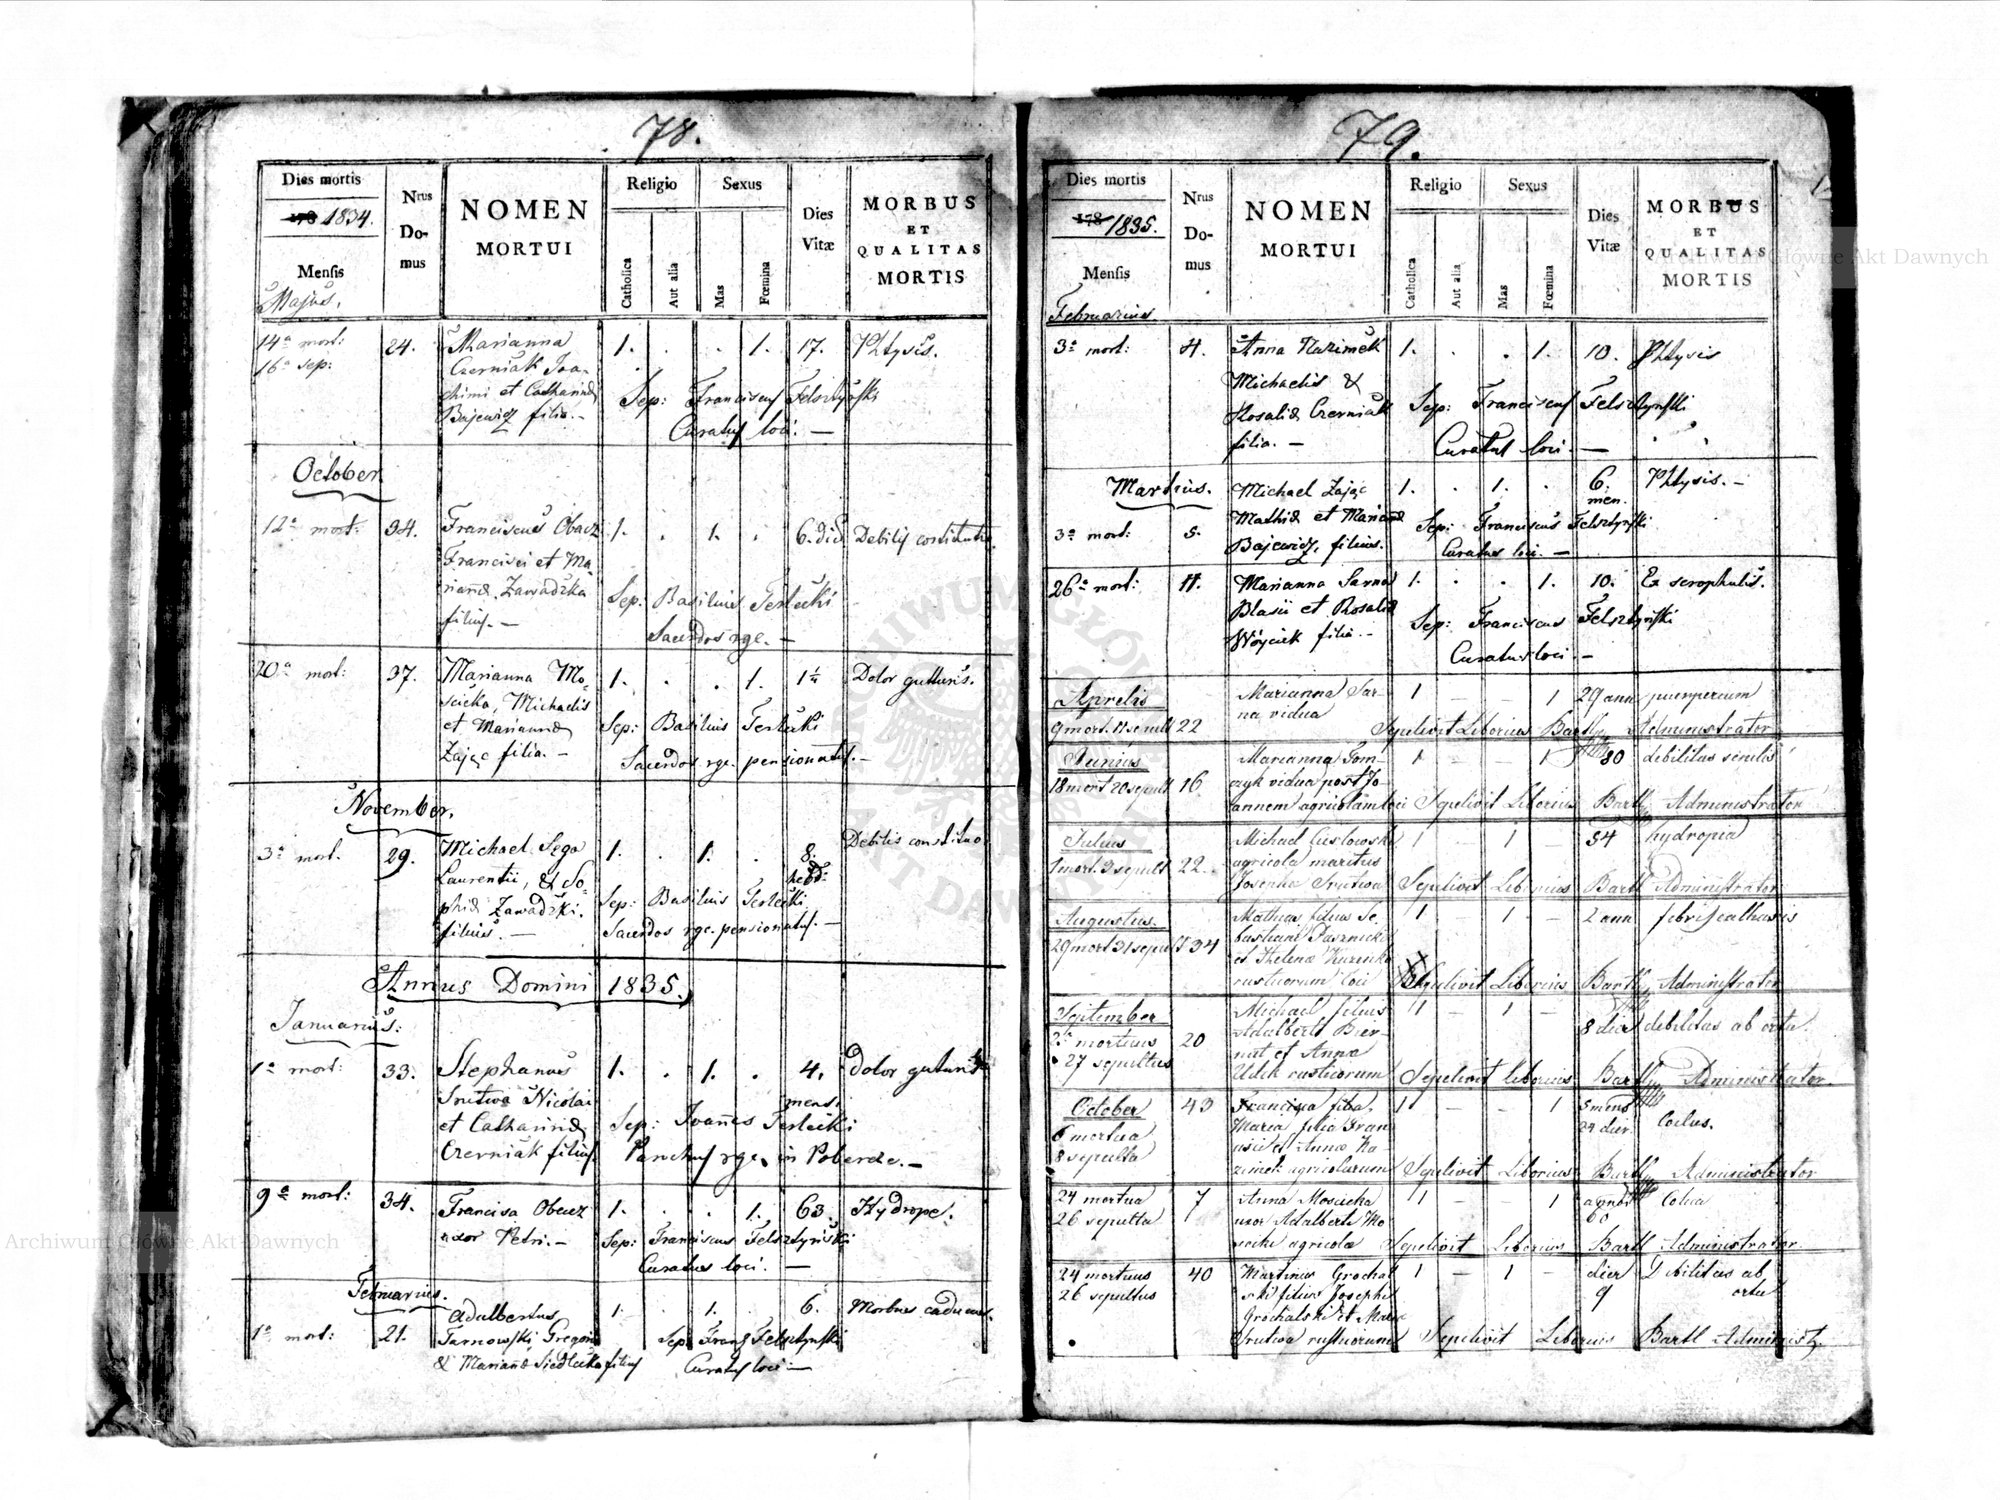 78.
Dies mortis
178 1834.
Mensis
Majus.
Nrus
Do-
mus
NOMEN
MORTUI
Religio
Catholica
Aut alia
Sexus
Mas
Fœmina
Dies
Vitæ
MORBUS
ET
QUALITAS
MORTIS
14a mort: 24. Marianna 1. . . 1. 17. Phtysis.
16a sep: Czerniak Joa-
chimi et Catharinæ Sep: Franciscus Felsztyński
Bajewicz filia. — Curatus loci. —
October
12a mort: 34. Franciscus Obacz 1. . 1. . 6. die Debilis constitutio.
Francisci et Ma-
riannæ Zawadzka Sep: Basilius Terlecki
filius. — Sacerdos rgc. —
20a mort: 37. Marianna Mo- 1. . . 1. 1½ Dolor gutturis.
scicka, Michaelis
et Mariannæ Sep: Basilius Terlecki
Zając filia. — Sacerdos rgc. pensionatus. —
November.
3a mort. 29. Michael Sega 1. . 1. . 8. Debilis constitutio
Laurentii, & So- hebd:
phiæ Zawadzki. Sep: Basilius Terlecki
filius. — Sacerdos rgc. pensionatus. —
Annus Domini 1835.
Januarius:
1a mort: 33. Stephanus 1. . 1. . 4. Dolor guturis
Srutwa Nicolai mens.
et Catharinæ Sep: Joannes Terlecki
Czerniak filius. Parochus rgc. in Poberze. —
9a mort: 34. Francisca Obacz 1. . . 1. 63. Hydrope.
uxor Petri. — Sep: Franciscus Felsztyński
Curatus loci. —
Februarius.
Adalbertus 1. 1. 6. Morbus caducus.
1a mort: 21. Tarnowski Gregorii Sep: Franz Felsztyński
& Mariannæ Siedlecka filius Curatus loci —
79.
Dies mortis
178 1835.
Mensis
Februarius.
Nrus
Do-
mus
NOMEN
MORTUI
Religio
Catholica
Aut alia
Sexus
Mas
Fœmina
Dies
Vitæ
MORBUS
ET
QUALITAS
MORTIS
3a mort: 4. Anna Kazimek 1. . . 1. 10. Phtysis
Michaelis &
Rosaliæ Czerniak Sep: Franciscus Felsztyński
filia. — Curatus loci. —
Martius. Michael Zając 1. . 1. . 6. Phtysis. —
men.
3a mort: 5. Mathiæ et Mariannæ Sep: Franciscus Felsztyński
Bajewicz, filius. Curatus loci. —
26a mort: 11. Marianna Sarna 1. . . 1. 10. Ex scrophulis.
Blasii et Rosaliæ Sep: Franciscus Felsztyński
Wójcick filia. — Curatus loci. —
Aprelis Marianna Sar- 1 — — 1 29 ann puerperium
na vidua
9 mort. 11 sepult 22 Sepelivit Liborius Bartl Administrator
Junius Marianna Tom- 1 — — 1 80 debilitas senilis
18 mort 20 sepult 16 czyk vidua post Jo-
annem agricolam loci Sepelivit Liborius Bartl Administrator
Julius Michael 1 — 1 — 54 hydropia
agricola maritus
1 mort. 3 sepult 22. Josepha Srutwa Sepelivit Liborius Bartl Administrator
Augustus. Mathias filius Se- 1 — 1 — 2 ann
bastiani
29 mort 31 sepult 34 et Helenæ
rusticorum loci Sepelivit Liborius Bartl Administrator
September Michael filius 1 — 1 —
Adalberti Bier- 8 dier debilitas ab ortu.
mortuus 20 nat et Anna
27 sepultus rusticorum Sepelivit liborius Bartl Administrator.
October 43 1 — — 1 5 mens
6 mortua Maria filia Fran 24 dier.
8 sepulta cisci et Annæ Ka
zimek agricolarum Sepelivit Liborius Bartl Administrator
24 mortua 7 Anna Moscicka 1 — — 1
26 sepulta uxor Adalberti Mo 60
scicki agricolæ Sepelivit Liborius Bartl Administrator
24 mortuus 40 Martinus Grochal 1 — 1 — dier Debilitas ab
26 sepultus ski filius Josephi 9 ortu
Grochalski et Mariæ
Srutwa rusticorum Sepelivit Liborius Bartl Administ.
Archiwum Główne Akt Dawnych
Archiwum Główne Akt Dawnych
ARCHIWUM GŁÓWNE AKT DAWNYCH